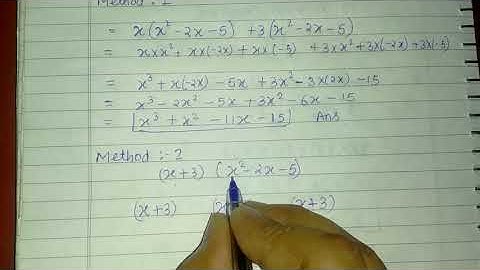 Method :- 1
= x(x² - 2x - 5) + 3(x² - 2x - 5)
= x×x² + x×(-2x) + x×(-5) + 3×x² + 3×(-2x) + 3×(-5)
= x³ + x(-2x) - 5x + 3x² - 3×(2x) - 15
= x³ - 2x² - 5x + 3x² - 6x - 15
= x³ + x² - 11x - 15 Ans
Method :- 2
(x+3) (x² - 2x - 5)
(x+3) (x (x+3)